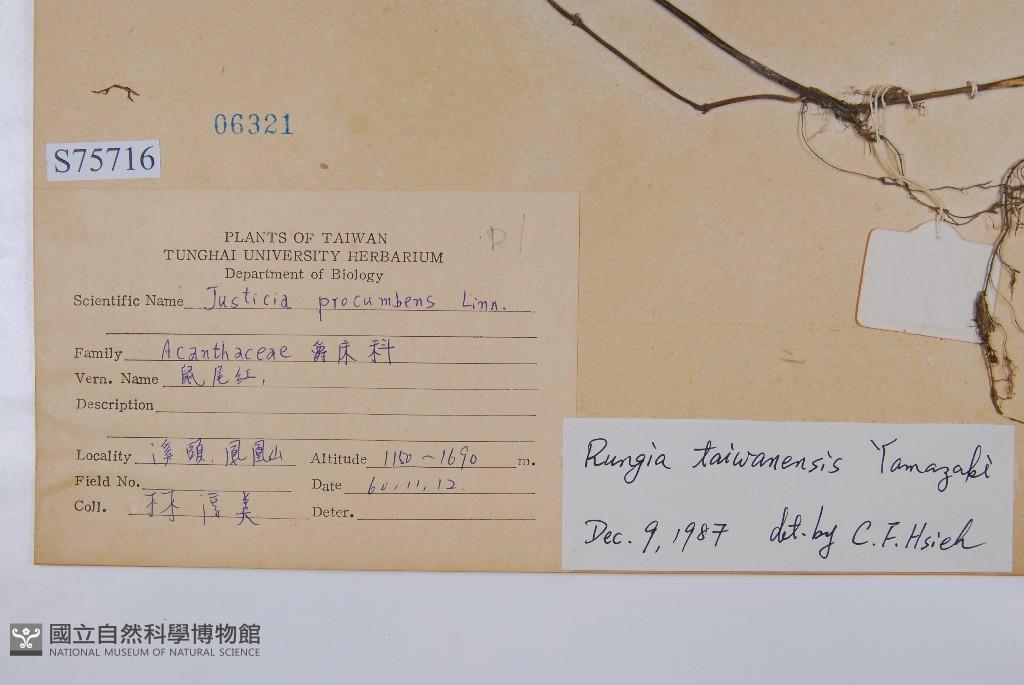 06321
S75716
PLANTS OF TAIWAN
TUNGHAI UNIVERSITY HERBARIUM
Department of Biology
Scientific Name Justicia procumbens Linn.
Family Acanthaceae 爵床科
Vern. Name 鼠尾紅.
Description
Locality 溪頭.鳳凰山 Altitude 1150~1690 m.
Field No. Date 60.11.12.
Coll. 林淳美 Deter.
Rungia taiwanensis Yamazaki
Dec. 9, 1987 det. by C.F. Hsieh
國立自然科學博物館
NATIONAL MUSEUM OF NATURAL SCIENCE